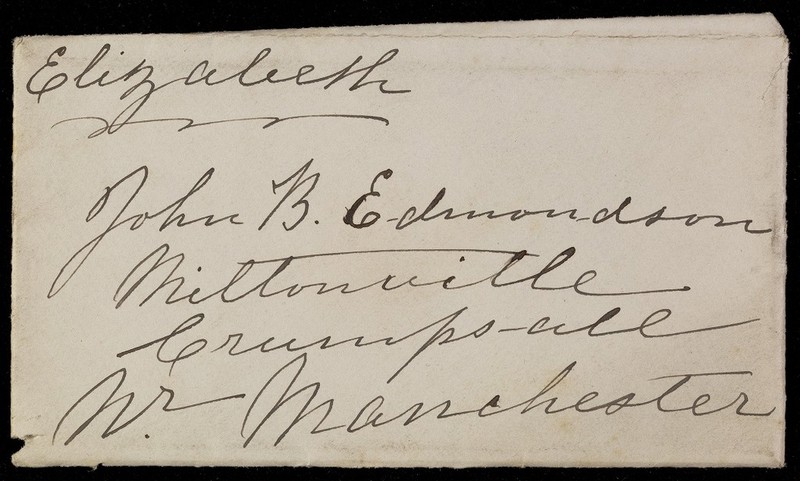 Elizabeth
John B. Edmondson
Miltonville
Crumpsall
Nr. Manchester